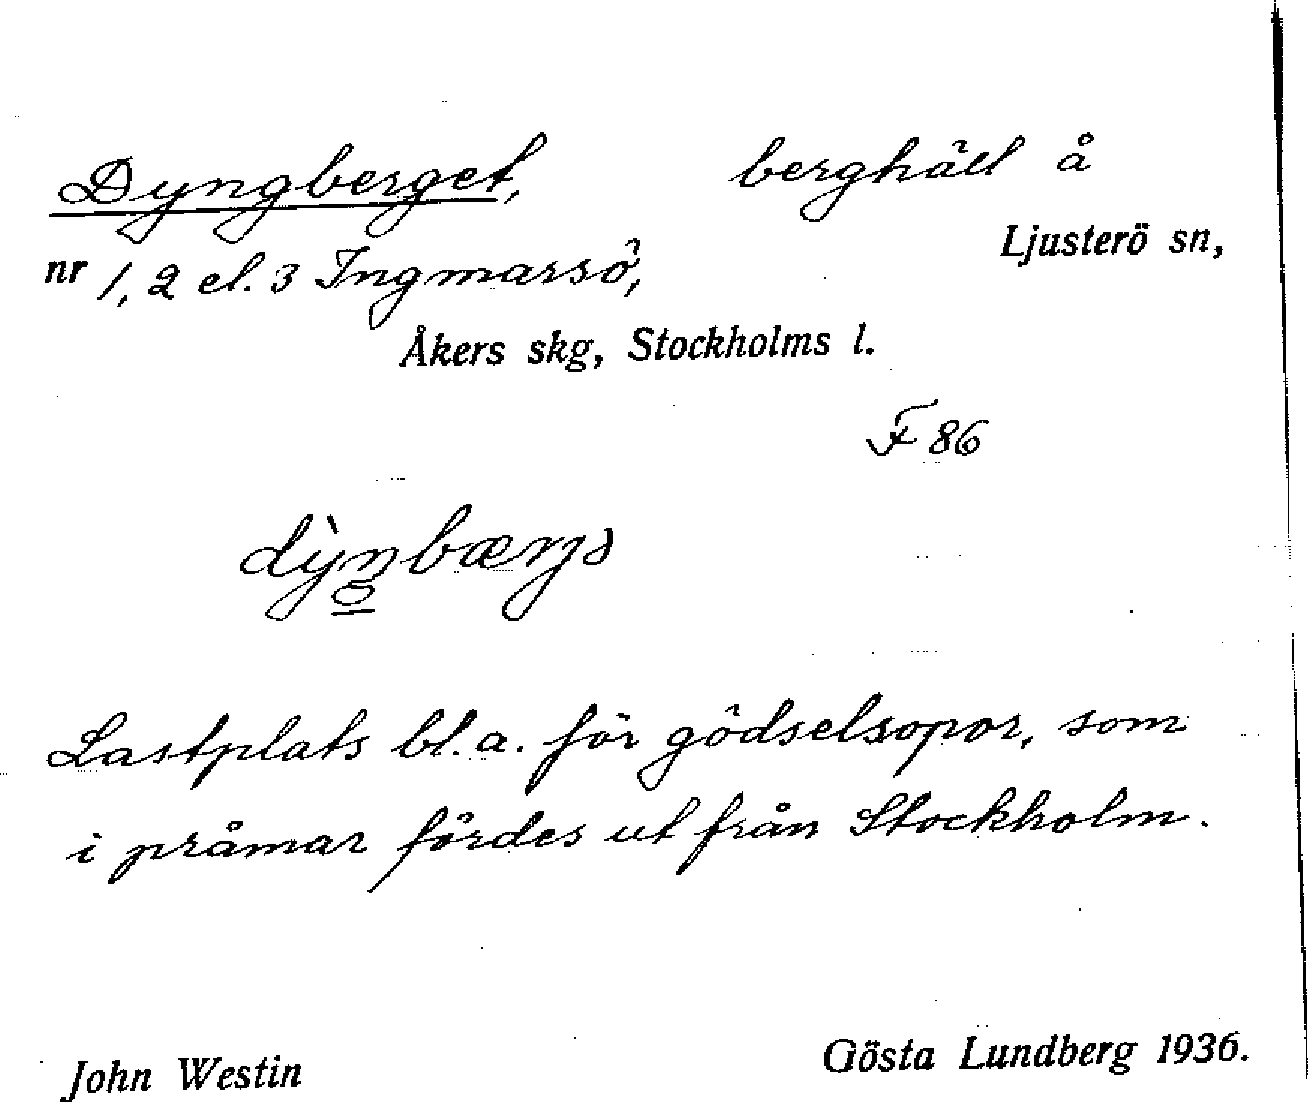 Dyngberget, berghäll å
Ljusterö sn,
nr 1, 2 el. 3 Ingmarsö,
Åkers skg, Stockholms l.
F 86
Lastplats bl.a. för gödselsopor, som
i pråmar fördes ut från Stockholm.
John Westin Gösta Lundberg 1936.